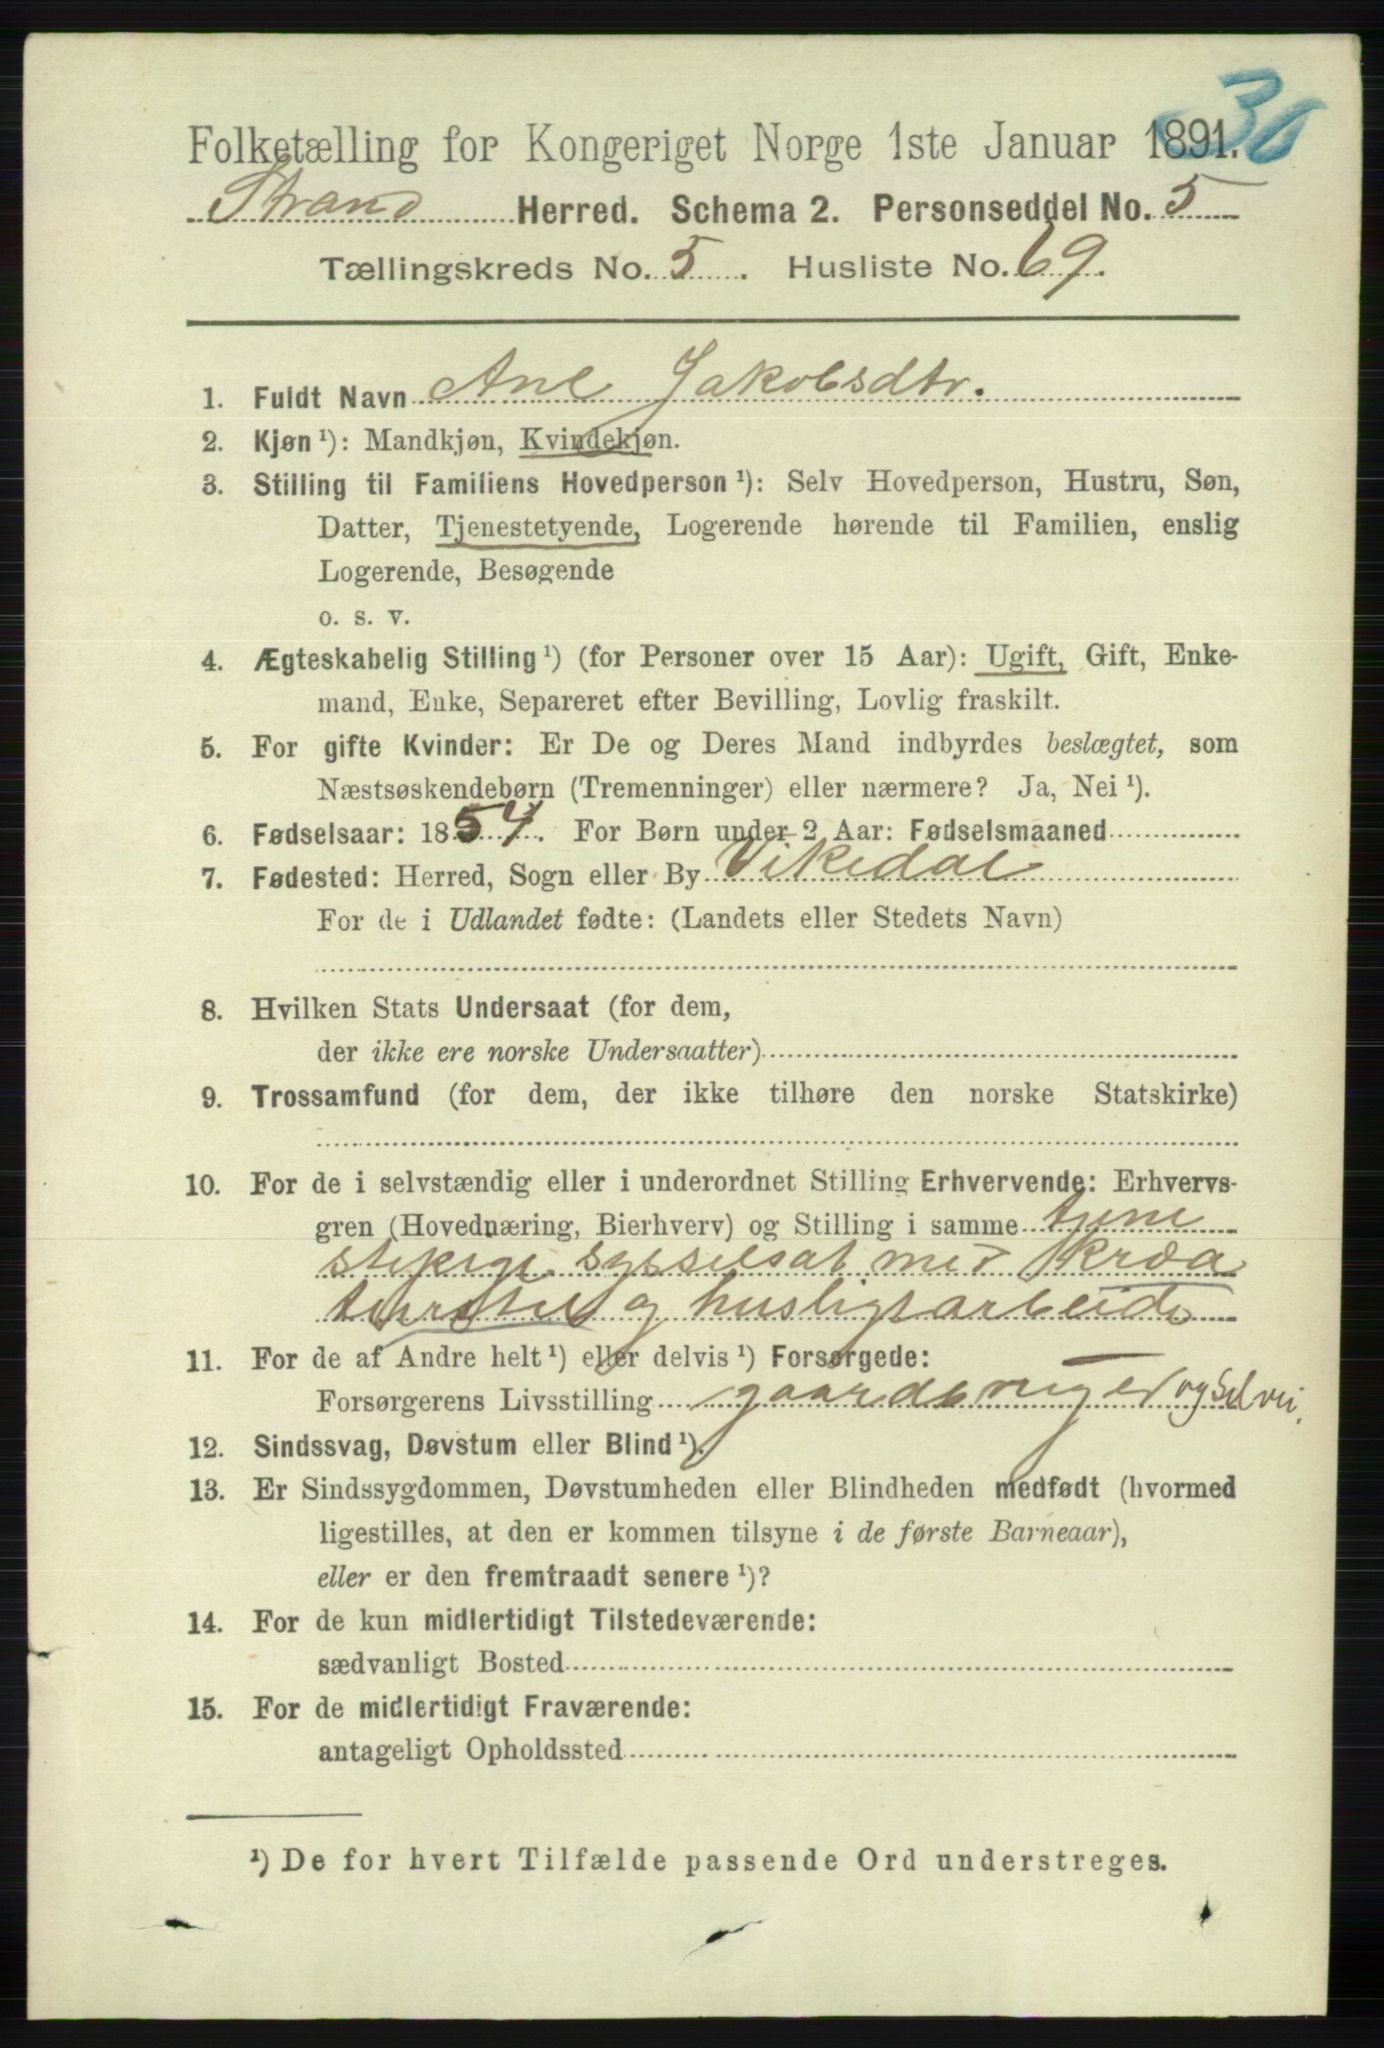 30
Folketælling for Kongeriget Norge 1ste Januar 1891.
Strand Herred. Schema 2. Personseddel No. 5
Tællingskreds No. 5. Husliste No. 69.
1. Fuldt Navn Ane Jakobsdtr.
2. Kjøn ¹): Mandkjøn, Kvindekjøn.
3. Stilling til Familiens Hovedperson ¹): Selv Hovedperson, Hustru, Søn,
Datter, Tjenestetyende, Logerende hørende til Familien, enslig
Logerende, Besøgende
o. s. v.
4. Ægteskabelig Stilling ¹) (for Personer over 15 Aar): Ugift, Gift, Enke-
mand, Enke, Separeret efter Bevilling, Lovlig fraskilt.
5. For gifte Kvinder: Er De og Deres Mand indbyrdes beslægtet, som
Næstsøskendebørn (Tremenninger) eller nærmere? Ja, Nei ¹).
6. Fødselsaar: 1854. For Børn under 2 Aar: Fødselsmaaned
7. Fødested: Herred, Sogn eller By Vikedal
For de i Udlandet fødte: (Landets eller Stedets Navn)
8. Hvilken Stats Undersaat (for dem,
der ikke ere norske Undersaatter)
9. Trossamfund (for dem, der ikke tilhøre den norske Statskirke)
10. For de i selvstændig eller i underordnet Stilling Erhvervende: Erhvervs-
gren (Hovednæring, Bierhverv) og Stilling i samme tjene
stepige sysselsat med
og husligtarbeide
11. For de af Andre helt ¹) eller delvis ¹) Forsørgede:
Forsørgerens Livsstilling gaardbruger
12. Sindssvag, Døvstum eller Blind ¹).
13. Er Sindssygdommen, Døvstumheden eller Blindheden medfødt (hvormed
ligestilles, at den er kommen tilsyne i de første Barneaar),
eller er den fremtraadt senere ¹)?
14. For de kun midlertidigt Tilstedeværende:
sædvanligt Bosted
15. For de midlertidigt Fraværende:
antageligt Opholdssted
¹) De for hvert Tilfælde passende Ord understreges.